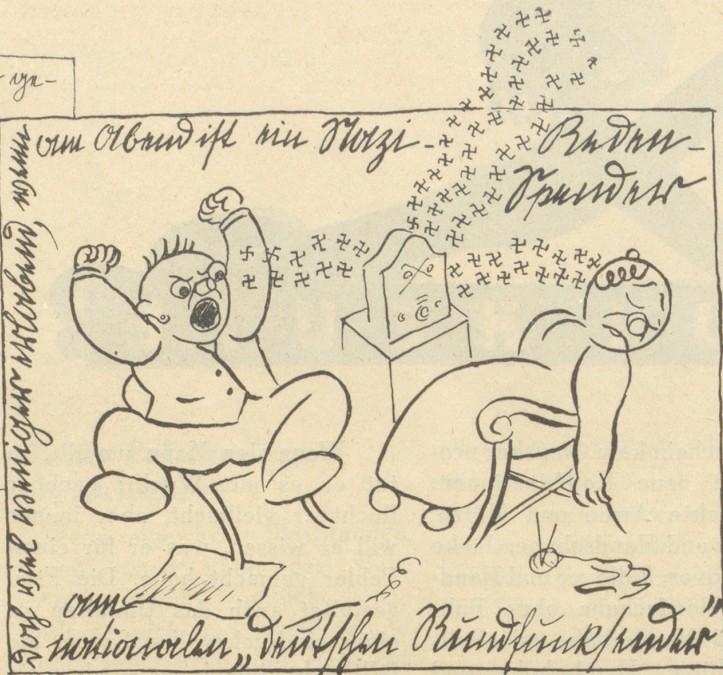 ge-
Doch viel weniger erlabend, wenn
am Abend ist ein Nazi-Reden-
Spender
am
nationalen „deutschen Rundfunksender"